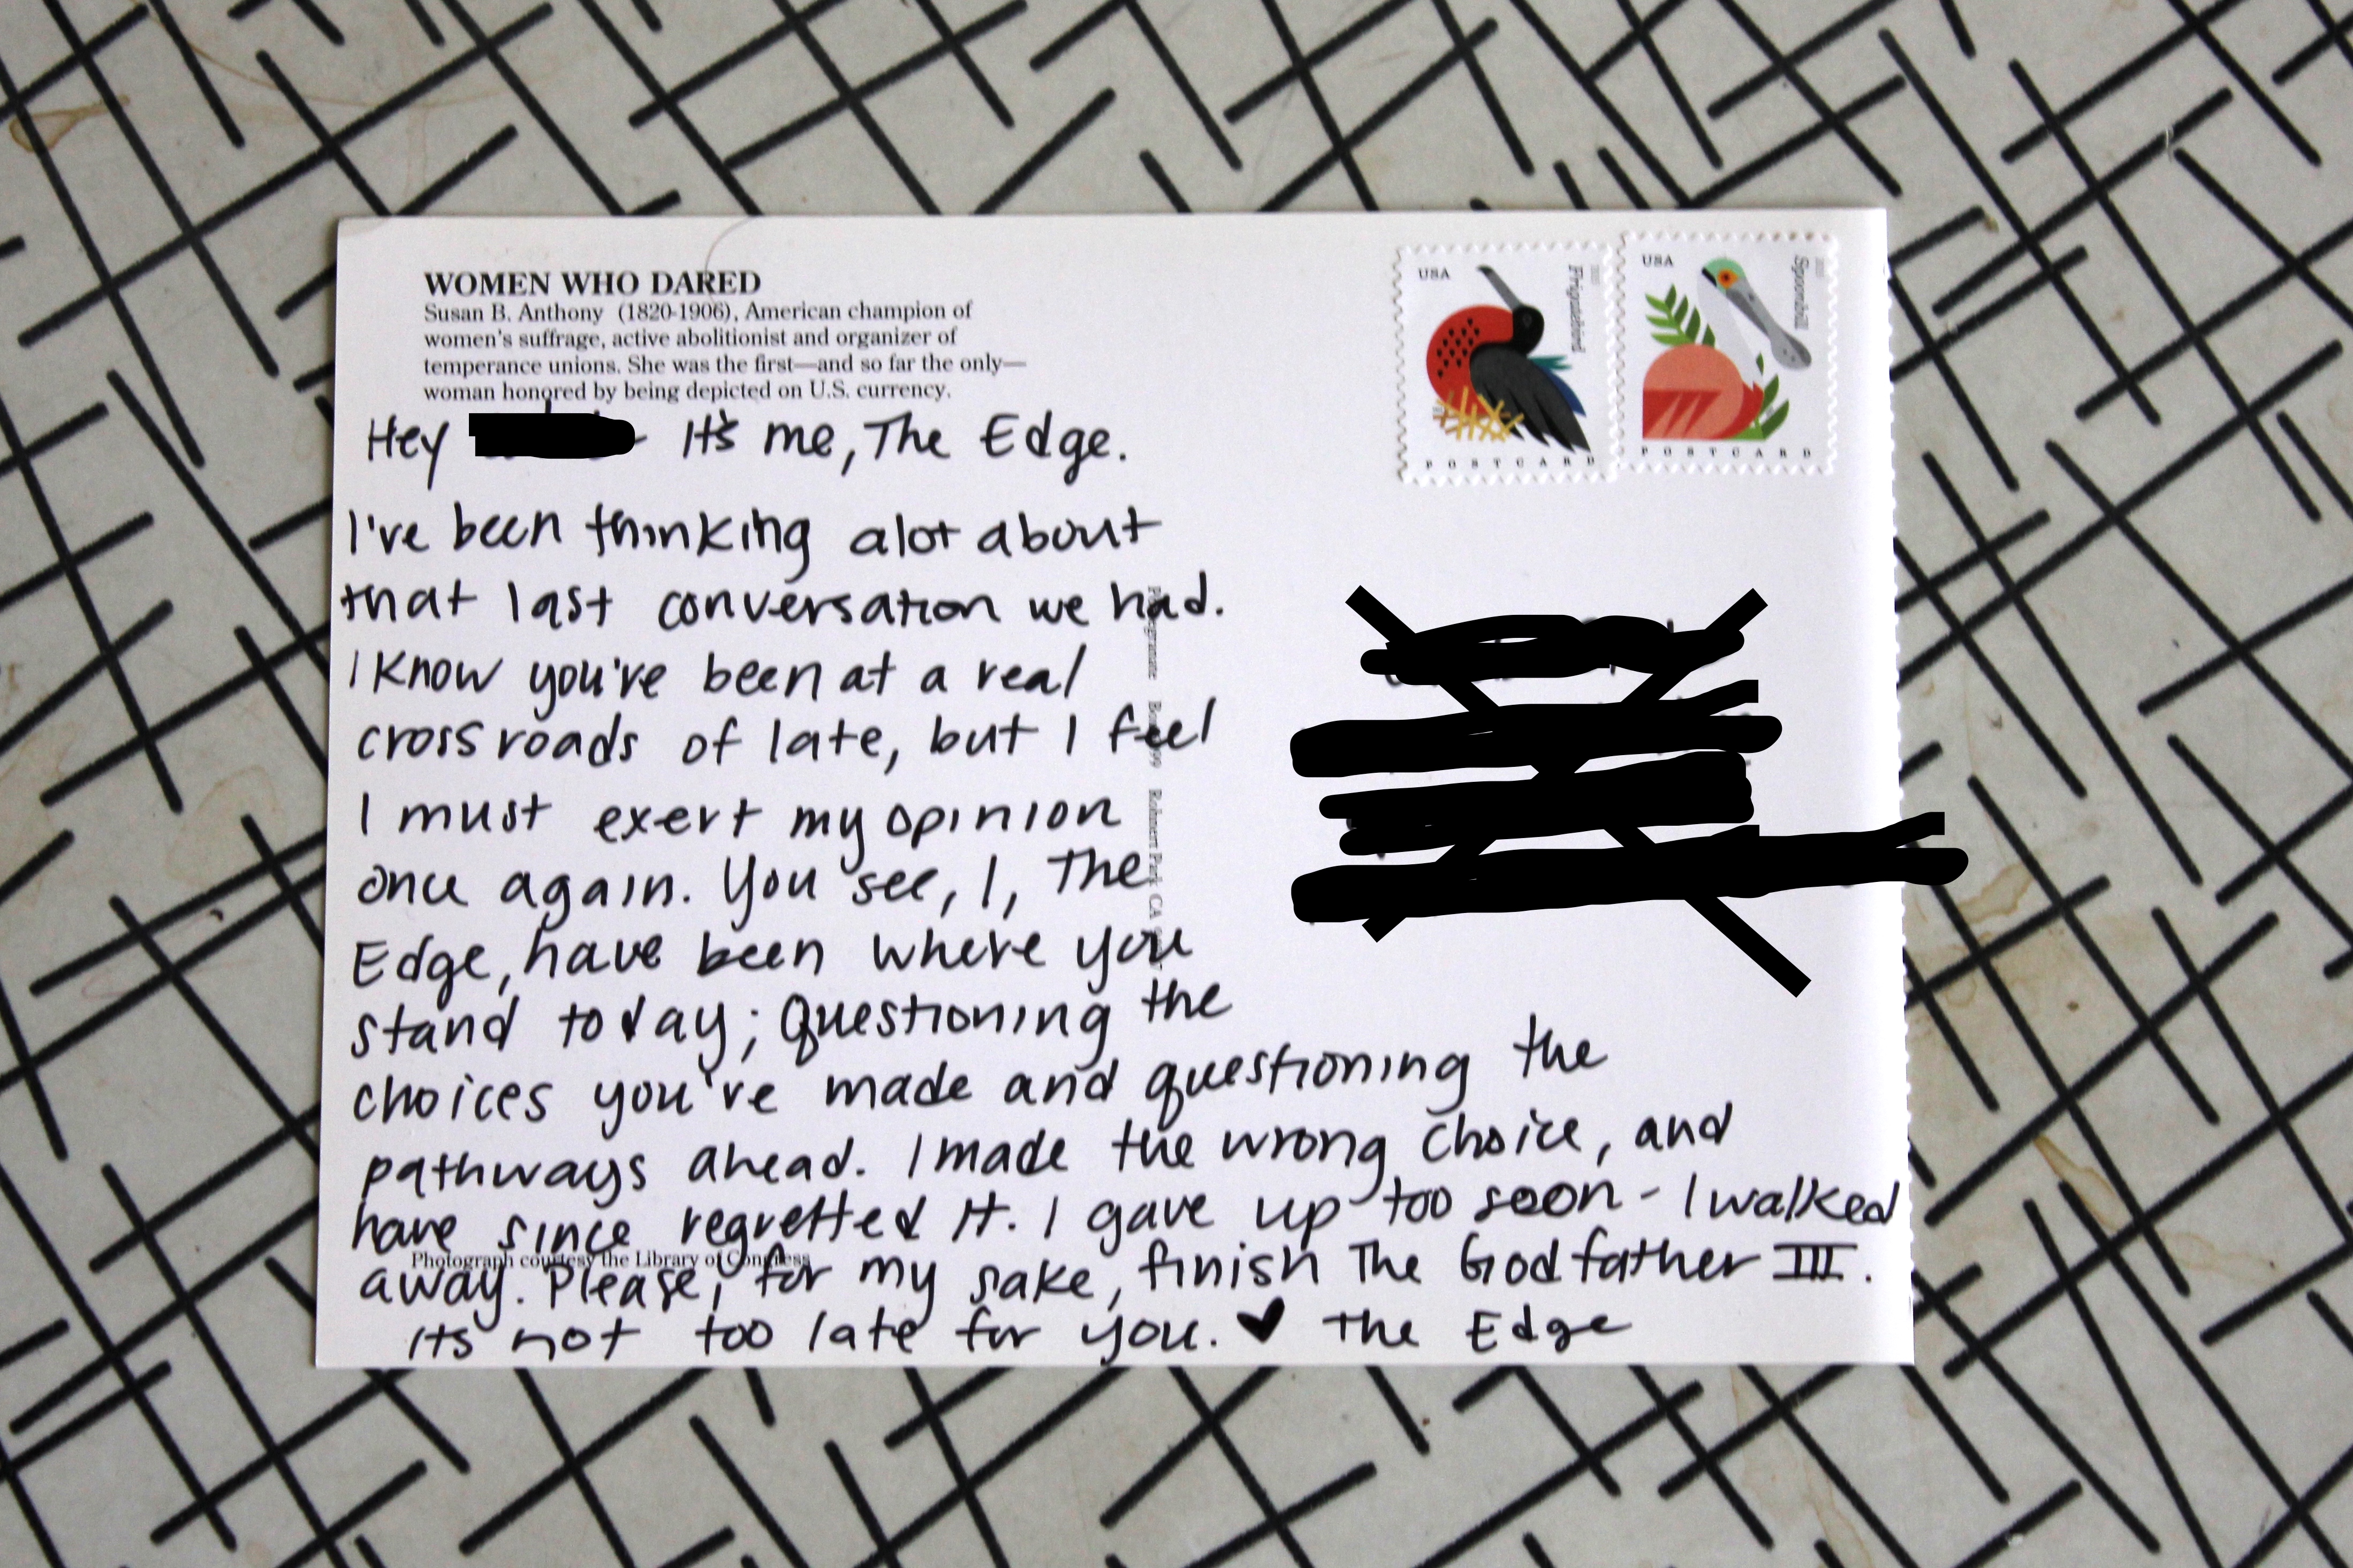 WOMEN WHO DARED
Susan B. Anthony (1820-1906), American champion of
women's suffrage, active abolitionist and organizer of
temperance unions. She was the first—and so far the only—
woman honored by being depicted on U.S. currency.
USA
Frigatebird
POSTCARD
USA
Spoonbill
POSTCARD
Hey - It's me, The Edge.
I've been thinking alot about
that last conversation we had.
I know you've been at a real
crossroads of late, but I feel
I must exert my opinion
once again. You see, I, The
Edge, have been where you
stand today; questioning the
choices you've made and questioning the
pathways ahead. I made the wrong choice, and
have since regretted it. I gave up too soon - I walked
away. Please, for my sake, finish The Godfather III.
its not too late for you. ♥ The Edge
Rohnert Park CA
Photograph courtesy the Library of Congress